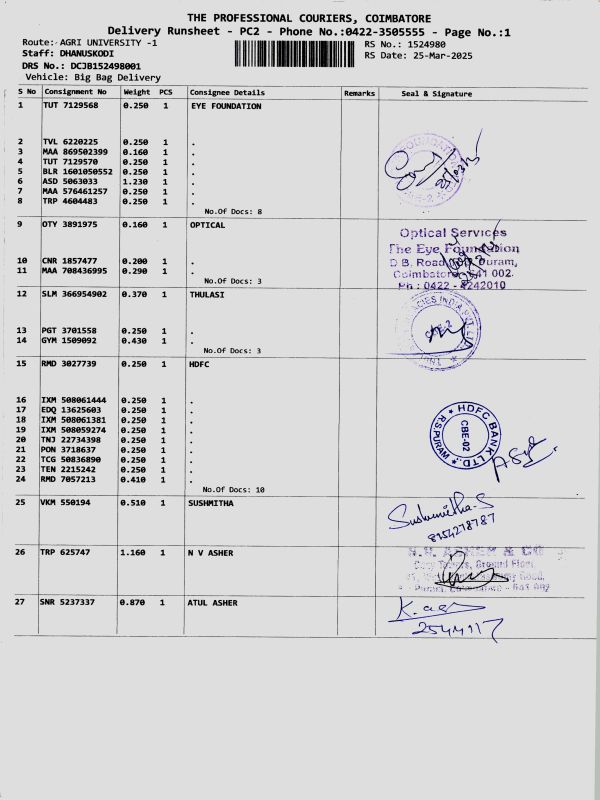 THE PROFESSIONAL COURIERS, COIMBATORE
Delivery Runsheet - PC2 - Phone No.:0422-3505555 - Page No.:1
Route:- AGRI UNIVERSITY -1 RS No.: 1524980
Staff: DHANUSKODI RS Date: 25-Mar-2025
DRS No.: DCJB152498001
Vehicle: Big Bag Delivery
S No Consignment No Weight PCS Consignee Details Remarks Seal & Signature
1 TUT 7129568 0.250 1 EYE FOUNDATION
2 TVL 6220225 0.250 1 .
3 MAA 869502399 0.160 1 .
4 TUT 7129570 0.250 1 .
5 BLR 1601050552 0.250 1 .
6 ASD 5063033 1.230 1 .
7 MAA 576461257 0.250 1 .
8 TRP 4604483 0.250 1 .
No.Of Docs: 8
9 OTY 3891975 0.160 1 OPTICAL
Optical Services
The Eye Foundation
10 CNR 1857477 0.200 1 .
D.B. Road, Puram,
11 MAA 708436995 0.290 1 .
Coimbatore 641 002.
No.Of Docs: 3
Ph : 0422 - 4242010
12 SLM 366954902 0.370 1 THULASI
13 PGT 3701558 0.250 1 .
14 GYM 1509092 0.430 1 .
No.Of Docs: 3
15 RMD 3027739 0.250 1 HDFC
16 IXM 508061444 0.250 1 .
17 EDQ 13625603 0.250 1 .
18 IXM 508061381 0.250 1 .
19 IXM 508059274 0.250 1 .
20 TNJ 22734398 0.250 1 .
21 PON 3718637 0.250 1 .
22 TCG 50836890 0.250 1 .
23 TEN 2215242 0.250 1 .
24 RMD 7057213 0.410 1 .
No.Of Docs: 10
HDFC BANK LTD. * R.S.PURAM *
CBE-02
25 VKM 550194 0.510 1 SUSHMITHA
Sushmitha-S
8754278787
26 TRP 625747 1.160 1 N V ASHER
N.V. ASHER & CO
Towers, Ground Floor,
27 SNR 5237337 0.870 1 ATUL ASHER
2544117